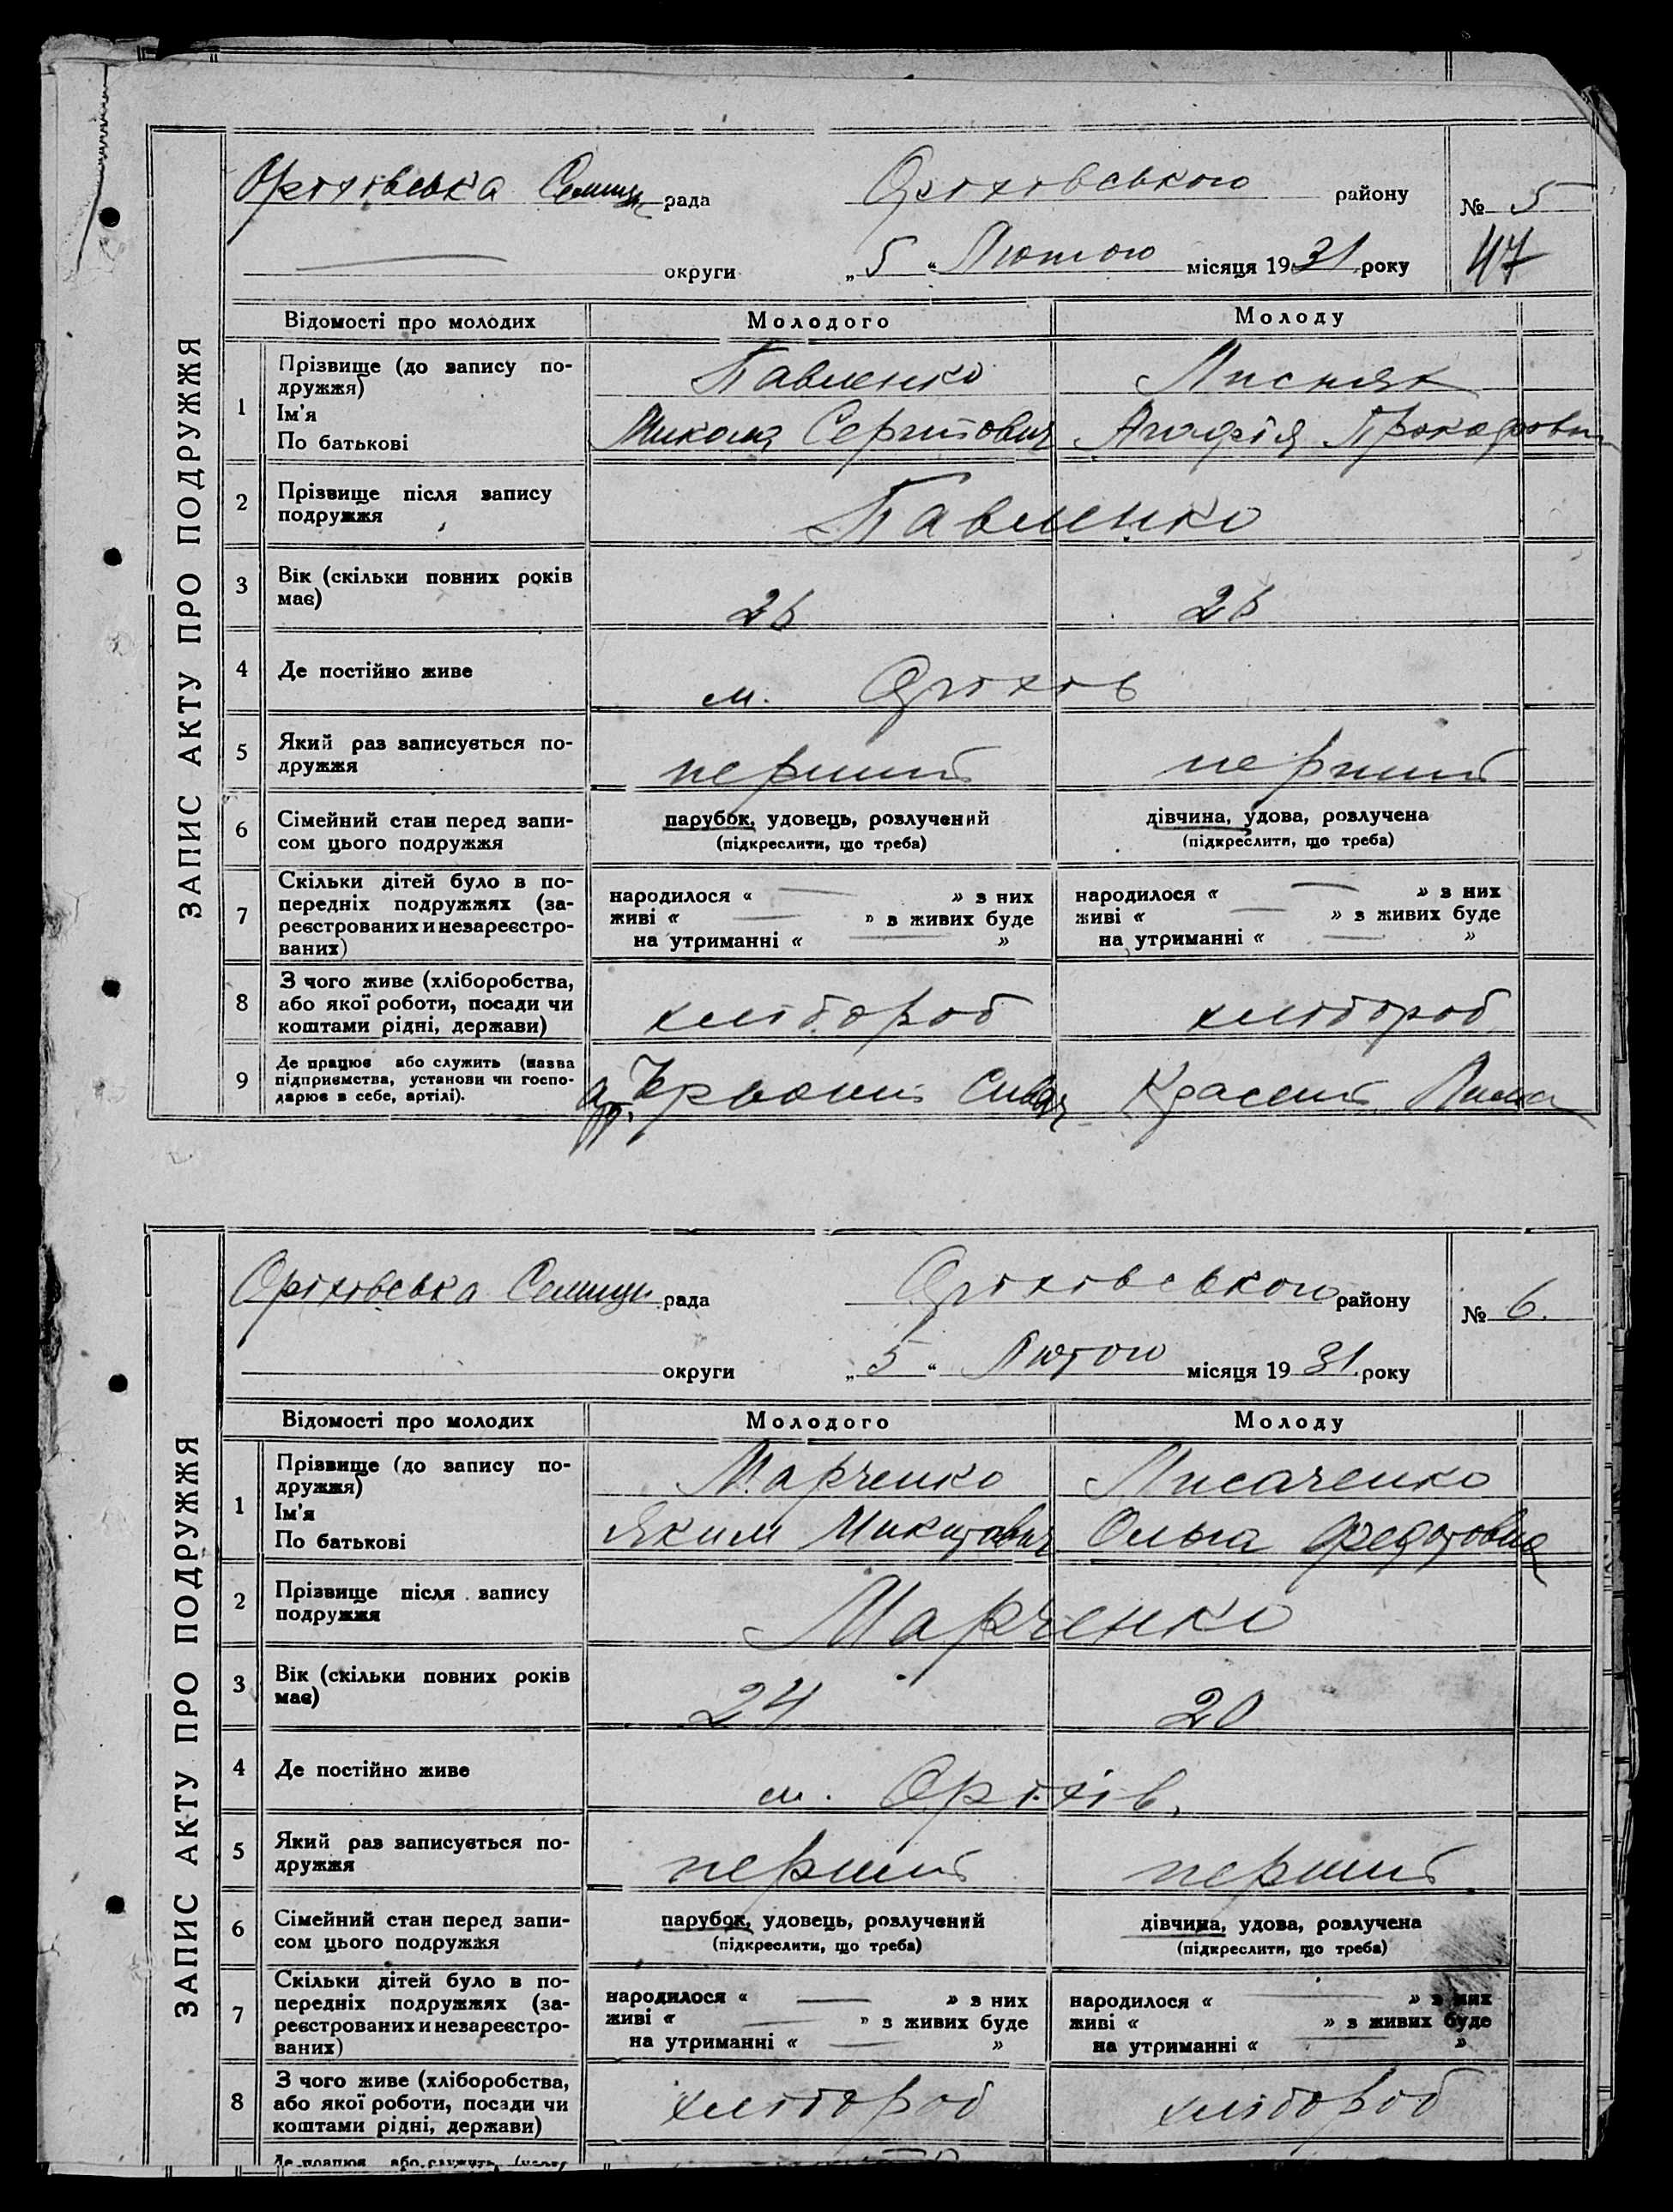 ЗАПИС АКТУ ПРО ПОДРУЖЖЯ
Оріхівська Селищн рада Оріхівського району № 5
округи „5“ Лютого місяця 1931 року 47
Відомості про молодих Молодого Молоду
1 Прізвище (до запису по-
дружжя) Павленко Лисняк
Ім'я
По батькові Микола Сергійович Агафія Прокофовн
2 Прізвище після запису
подружжя Павленко
3 Вік (скільки повних років
має) 26 26
4 Де постійно живе м. Оріхів
5 Який раз записується по-
дружжя перший перший
6 Сімейний стан перед запи-
сом цього подружжя
парубок, удовець, розлучений дівчина, удова, розлучена
(підкреслити, що треба) (підкреслити, що треба)
7 Скільки дітей було в по-
передніх подружжях (за-
реєстрованих и незареєстро-
ваних)
народилося « — » з них народилося « — » з них
живі « — » з живих буде живі « — » з живих буде
на утриманні « — » на утриманні « — »
8 З чого живе (хліборобства,
або якої роботи, посади чи
коштами рідні, держави) хлібороб хлібороб
9 Де працює або служить (назва
підприємства, установи чи госпо-
дарює в себе, артілі).
Червоний Сивач Красний Лима
ЗАПИС АКТУ ПРО ПОДРУЖЖЯ
Оріхівська Селищн рада Оріхівського району № 6.
округи „5“ Лютого місяця 1931 року
Відомості про молодих Молодого Молоду
1 Прізвище (до запису по-
дружжя) Марченко Лисаченко
Ім'я
По батькові Яким Микитович Ольга Федотовна
2 Прізвище після запису
подружжя Марченко
3 Вік (скільки повних років
має) 24 20
4 Де постійно живе м. Оріхів.
5 Який раз записується по-
дружжя перший перший
6 Сімейний стан перед запи-
сом цього подружжя
парубок, удовець, розлучений дівчина, удова, розлучена
(підкреслити, що треба) (підкреслити, що треба)
7 Скільки дітей було в по-
передніх подружжях (за-
реєстрованих и незареєстро-
ваних)
народилося « — » з них народилося « — » з них
живі « — » з живих буде живі « — » з живих буде
на утриманні « — » на утриманні « — »
8 З чого живе (хліборобства,
або якої роботи, посади чи
коштами рідні, держави) хлібороб хлібороб
Де працює або служить (назва